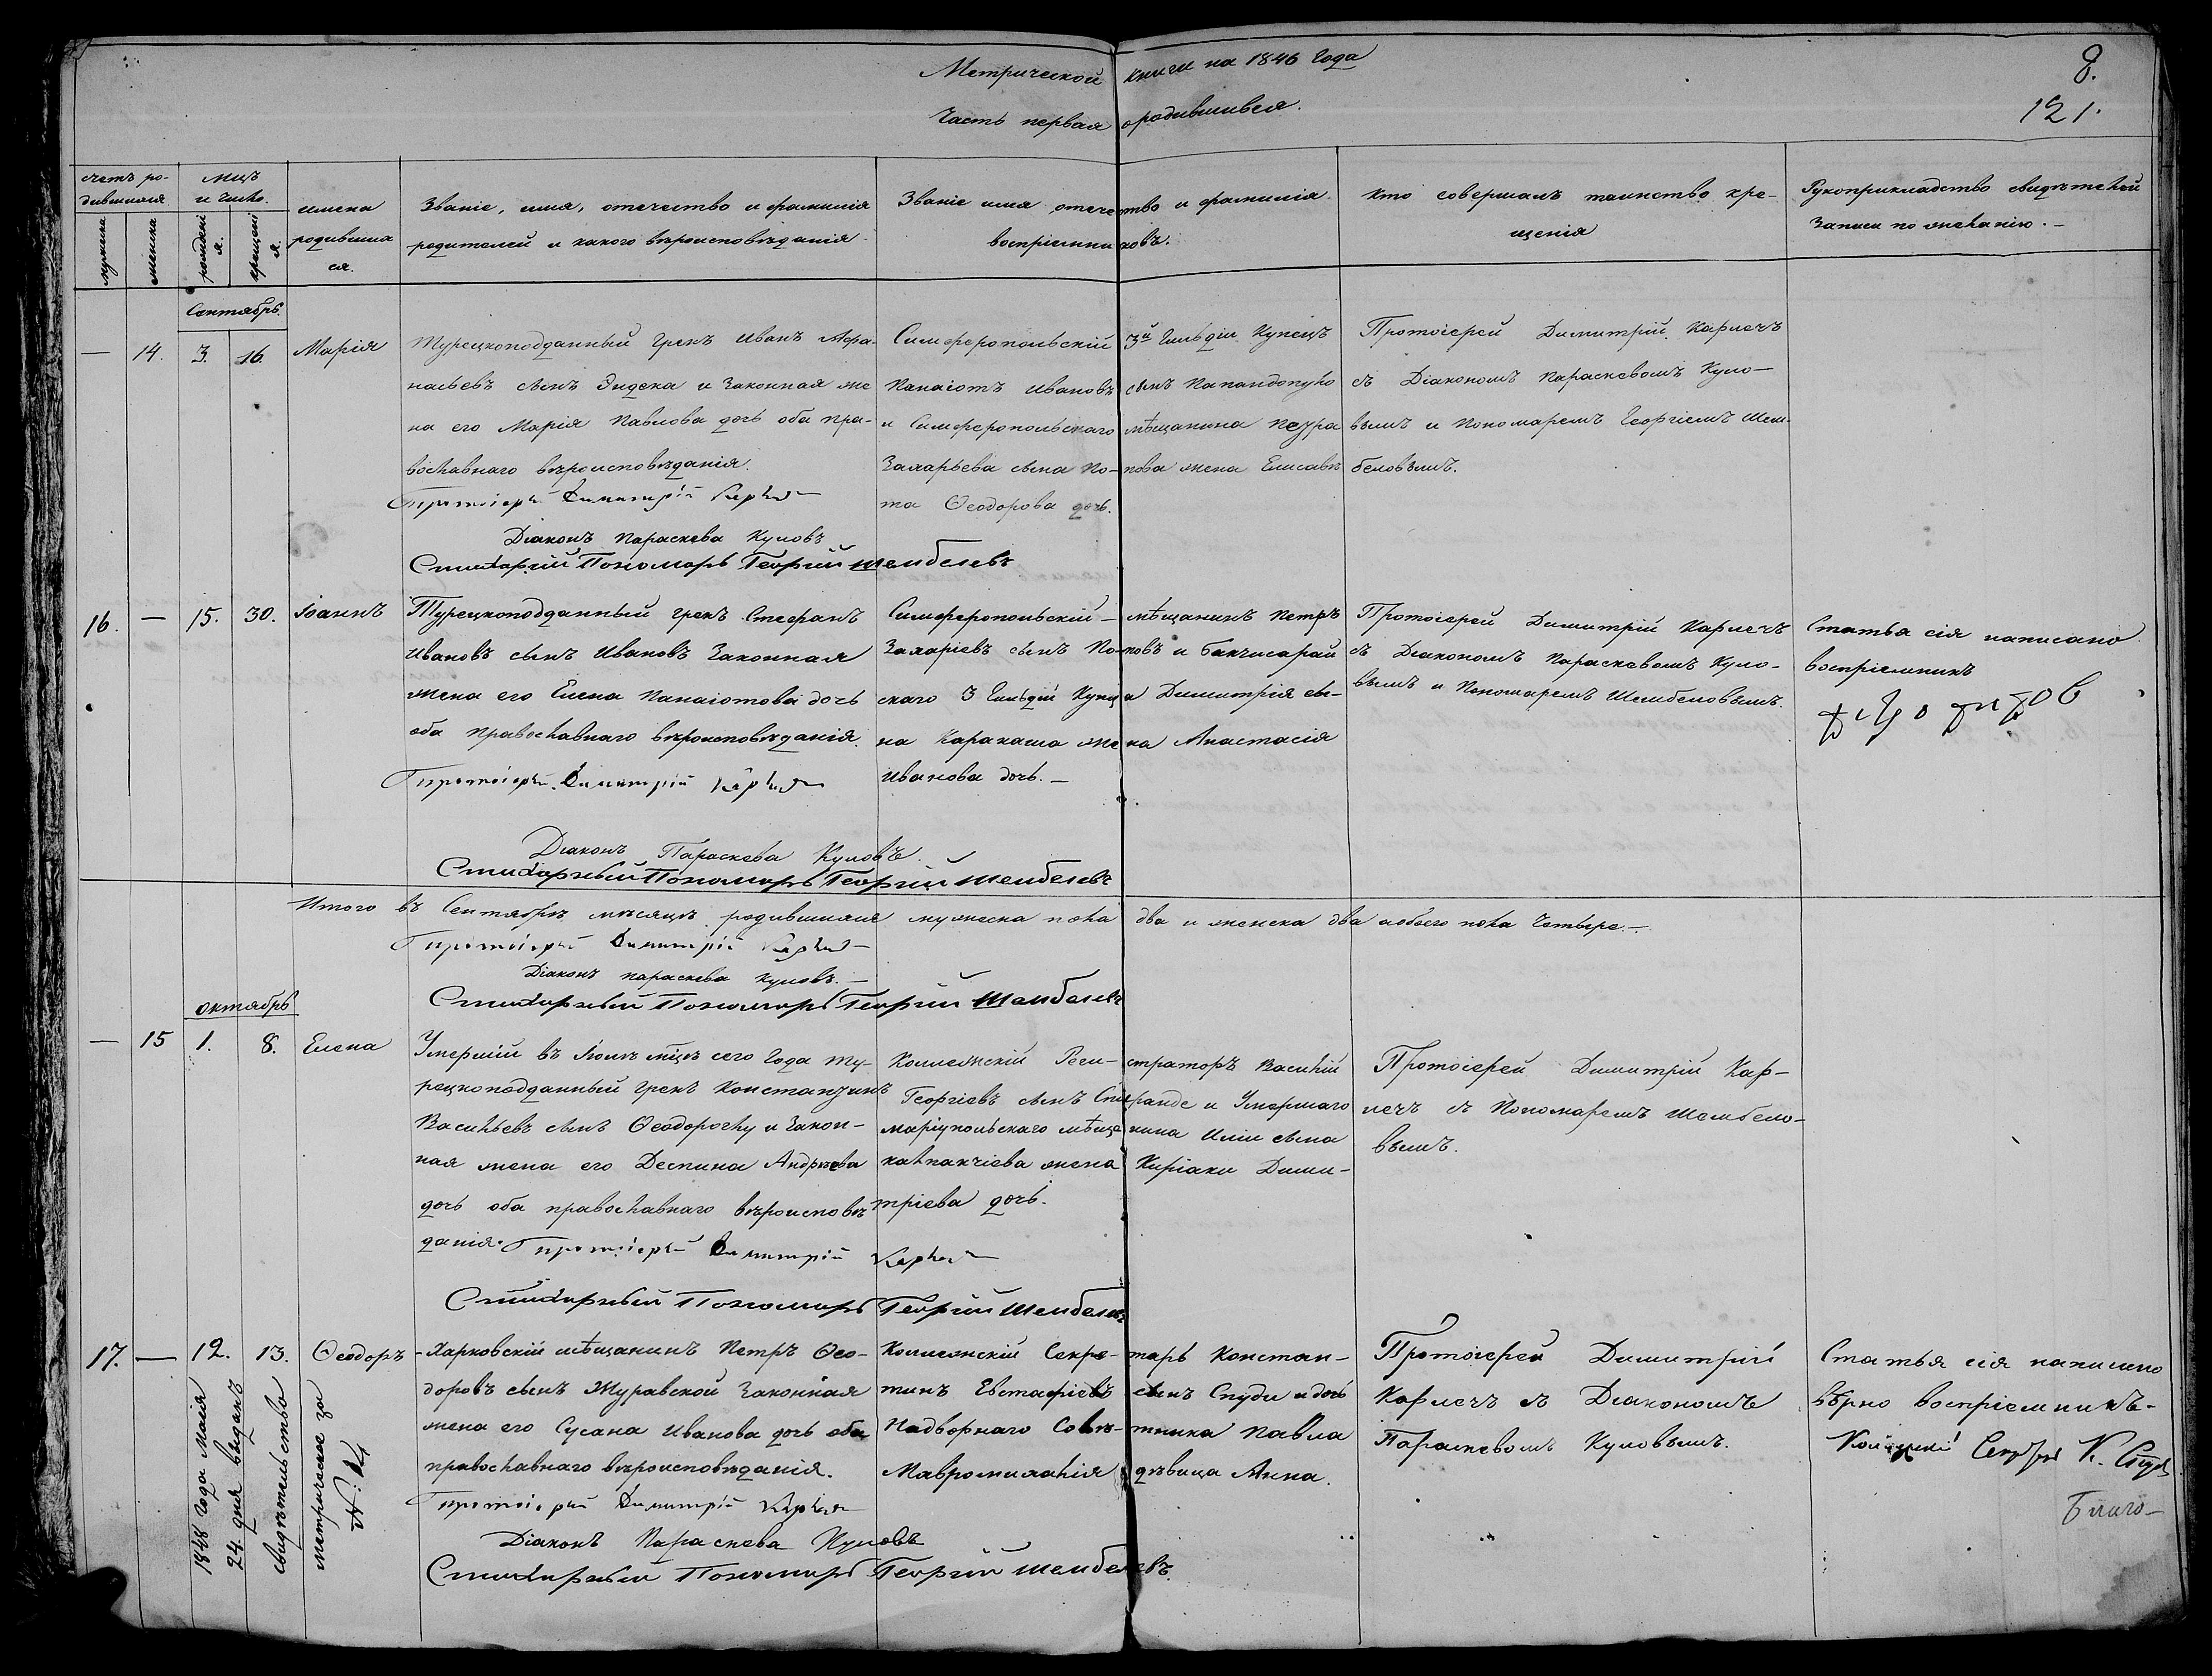 Метрической книги на 1846 года
8.
Часть первая о родившихся.
121.
счетъ родившихся
мужеска
женска
мцъ и число.
рожденія.
крещенія.
имена родившихся.
Званіе, имя, отечество и фамилія
родителей и какого вѣроисповѣданія
Званіе имя отечество и фамилія
воспріемниковъ.
кто совершалъ таинство крещенія
Рукоприкладство свидѣтелей
Записи по желанію. —
Сентябрь.
— 14. 3. 16. Марія
Турецкоподданный грекъ Иванъ Афа-
насьевъ сынъ Эндека и Законная же
на его Марія Павлова дочь оба пра-
вославнаго вѣроисповѣданія.
Протоіерей Димитрій
Діаконъ Параскева Кумовъ
Стихарный Пономарь Георгій Шембелевъ
Симферопольскій 3й Гильдіи Купецъ
Панаіотъ Ивановъ сынъ Папандопуло
и Симферопольскаго мѣщанина Петра
Захарьева сына Попова жена Елисаве
та Ѳеодорова дочь.
Протоіерей Димитрій Карлечъ
съ Діакономъ Параскевомъ Кумо—
вымъ и Пономаремъ Георгіемъ Шем-
беловымъ.
16. — 15. 30. Іоаннъ
Турецкоподданный грекъ Стефанъ
Ивановъ сынъ Ивановъ Законная
жена его Елена Панаіотова дочь
оба православнаго вѣроисповѣданія.
Протоіерей Димитрій
Діаконъ Параскева Кумовъ.
Стихарный Пономарь Георгій Шембелевъ
Симферопольскій — мѣщанинъ Петръ
Захаріевъ сынъ Поповъ и Бакчисарай
скаго 3 Гильдіи Купца Димитрія сы-
на Каракаша жена Анастасія
Иванова дочь. —
Протоіерей Димитрій Карлечъ
съ Діакономъ Параскевомъ Кумо-
вымъ и Пономаремъ Шембеловымъ.
Статья сія написано
воспріемникъ
Итого въ Сентябрѣ мѣсяцѣ родившихся мужеска пола два и женска два а обоего пола четыре. —
Протоіерей Димитрій
Діаконъ Параскева Кумовъ. —
Стихарный Пономарь Георгій Шембелевъ
октябрь
— 15 1. 8. Елена
Умершій въ Іюнѣ мцѣ сего года ту-
рецкоподданный грекъ Константинъ
Васильевъ сынъ Ѳеодороглу и Закон-
ная жена его Деспина Андрѣева
дочь оба православнаго вѣроисповѣ
данія. Протоіерей Димитрій
Стихарный Пономарь Георгій Шембелевъ
Коллежскій Реги-страторъ Василій
Георгіевъ сынъ Спиранде и Умершаго
маріупольскаго мѣщанина Иліи сына
калпакчіева жена Киріаки Дими-
тріева дочь.
Протоіерей Димитрій Кар-
лечъ съ Пономаремъ Шембело-
вымъ.
17. — 12. 13. Ѳеодоръ
1848 года Маія
24. дня выданъ
свидѣтельство
метрическое за
№: 14
Харковскій мѣщанинъ Петръ Ѳео-
доровъ сынъ Журавской Законная
жена его Сусана Иванова дочь оба
православнаго вѣроисповѣданія.
Протоіерей Димитрій
Діаконъ Параскева Кумовъ
Стихарный Пономарь Георгій Шембелевъ.
Коллежскій Секре-тарь Констан-
тинъ Евстафіевъ сынъ Спуди и дочь
Надворнаго Совѣ-тника Павла
Мавромихалія дѣвица Анна.
Протоіерей Димитрій
Карлечъ съ Діакономъ
Параскевомъ Кумовымъ.
Статья сія написано
вѣрно воспріемникъ-
К. Спуди
Благо—